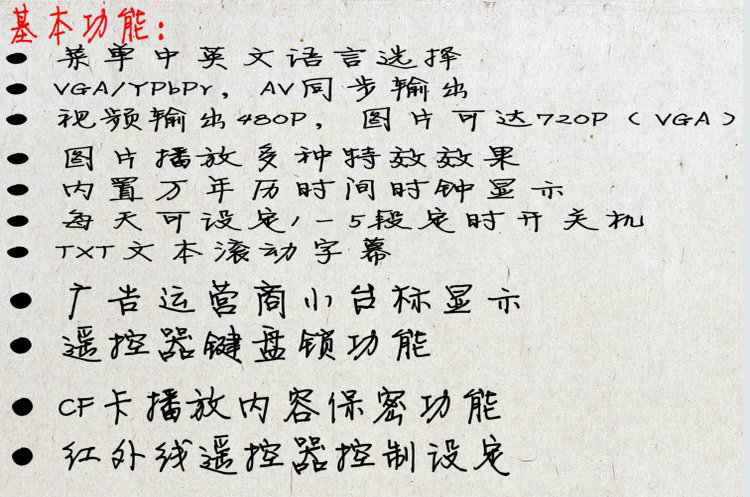 基本功能：
● 菜单中英文语言选择
● VGA/YPbPr，AV同步输出
● 视频输出480P，图片可达720P（VGA）
● 图片播放多种特效效果
● 内置万年历时间时钟显示
● 每天可设定1-5段定时开关机
● TXT文本滚动字幕
● 广告运营商小台标显示
● 遥控器键盘锁功能
● CF卡播放内容保密功能
● 红外线遥控器控制设定